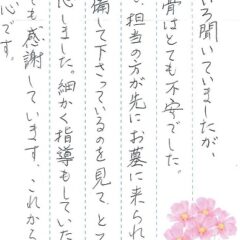 ろ聞いていましたが、
骨はとても不安でした。
い、担当の方が先にお墓に来られ
備して下さっているのを見て、とて
心しました。細かく指導もしていた
ても感謝しています。これから
心です。